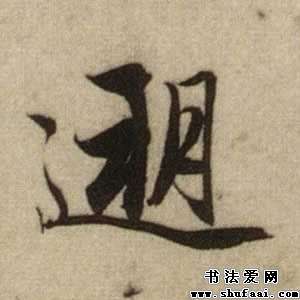 遡
书法爱网
www.shufaai.com